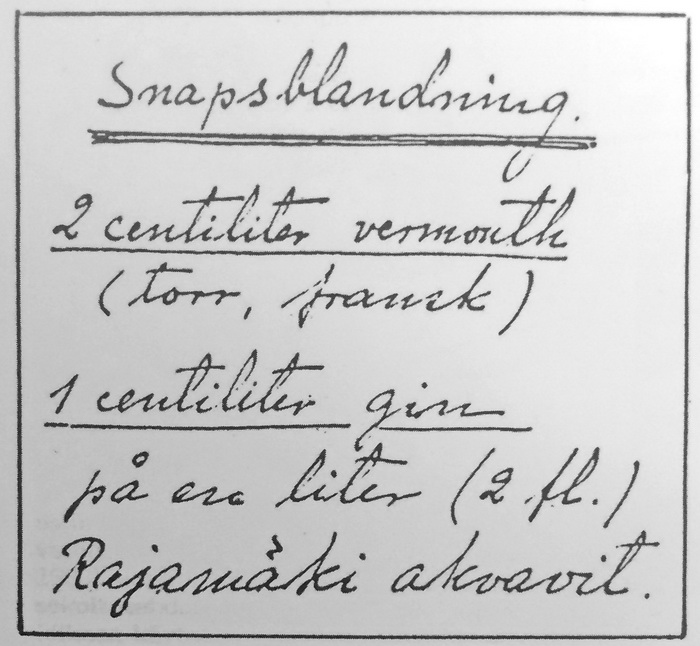 Snapsblandning.
2 centiliter vermouth
(torr, fransk)
1 centiliter gin
på en liter (2 fl.)
Rajamäki akvavit.